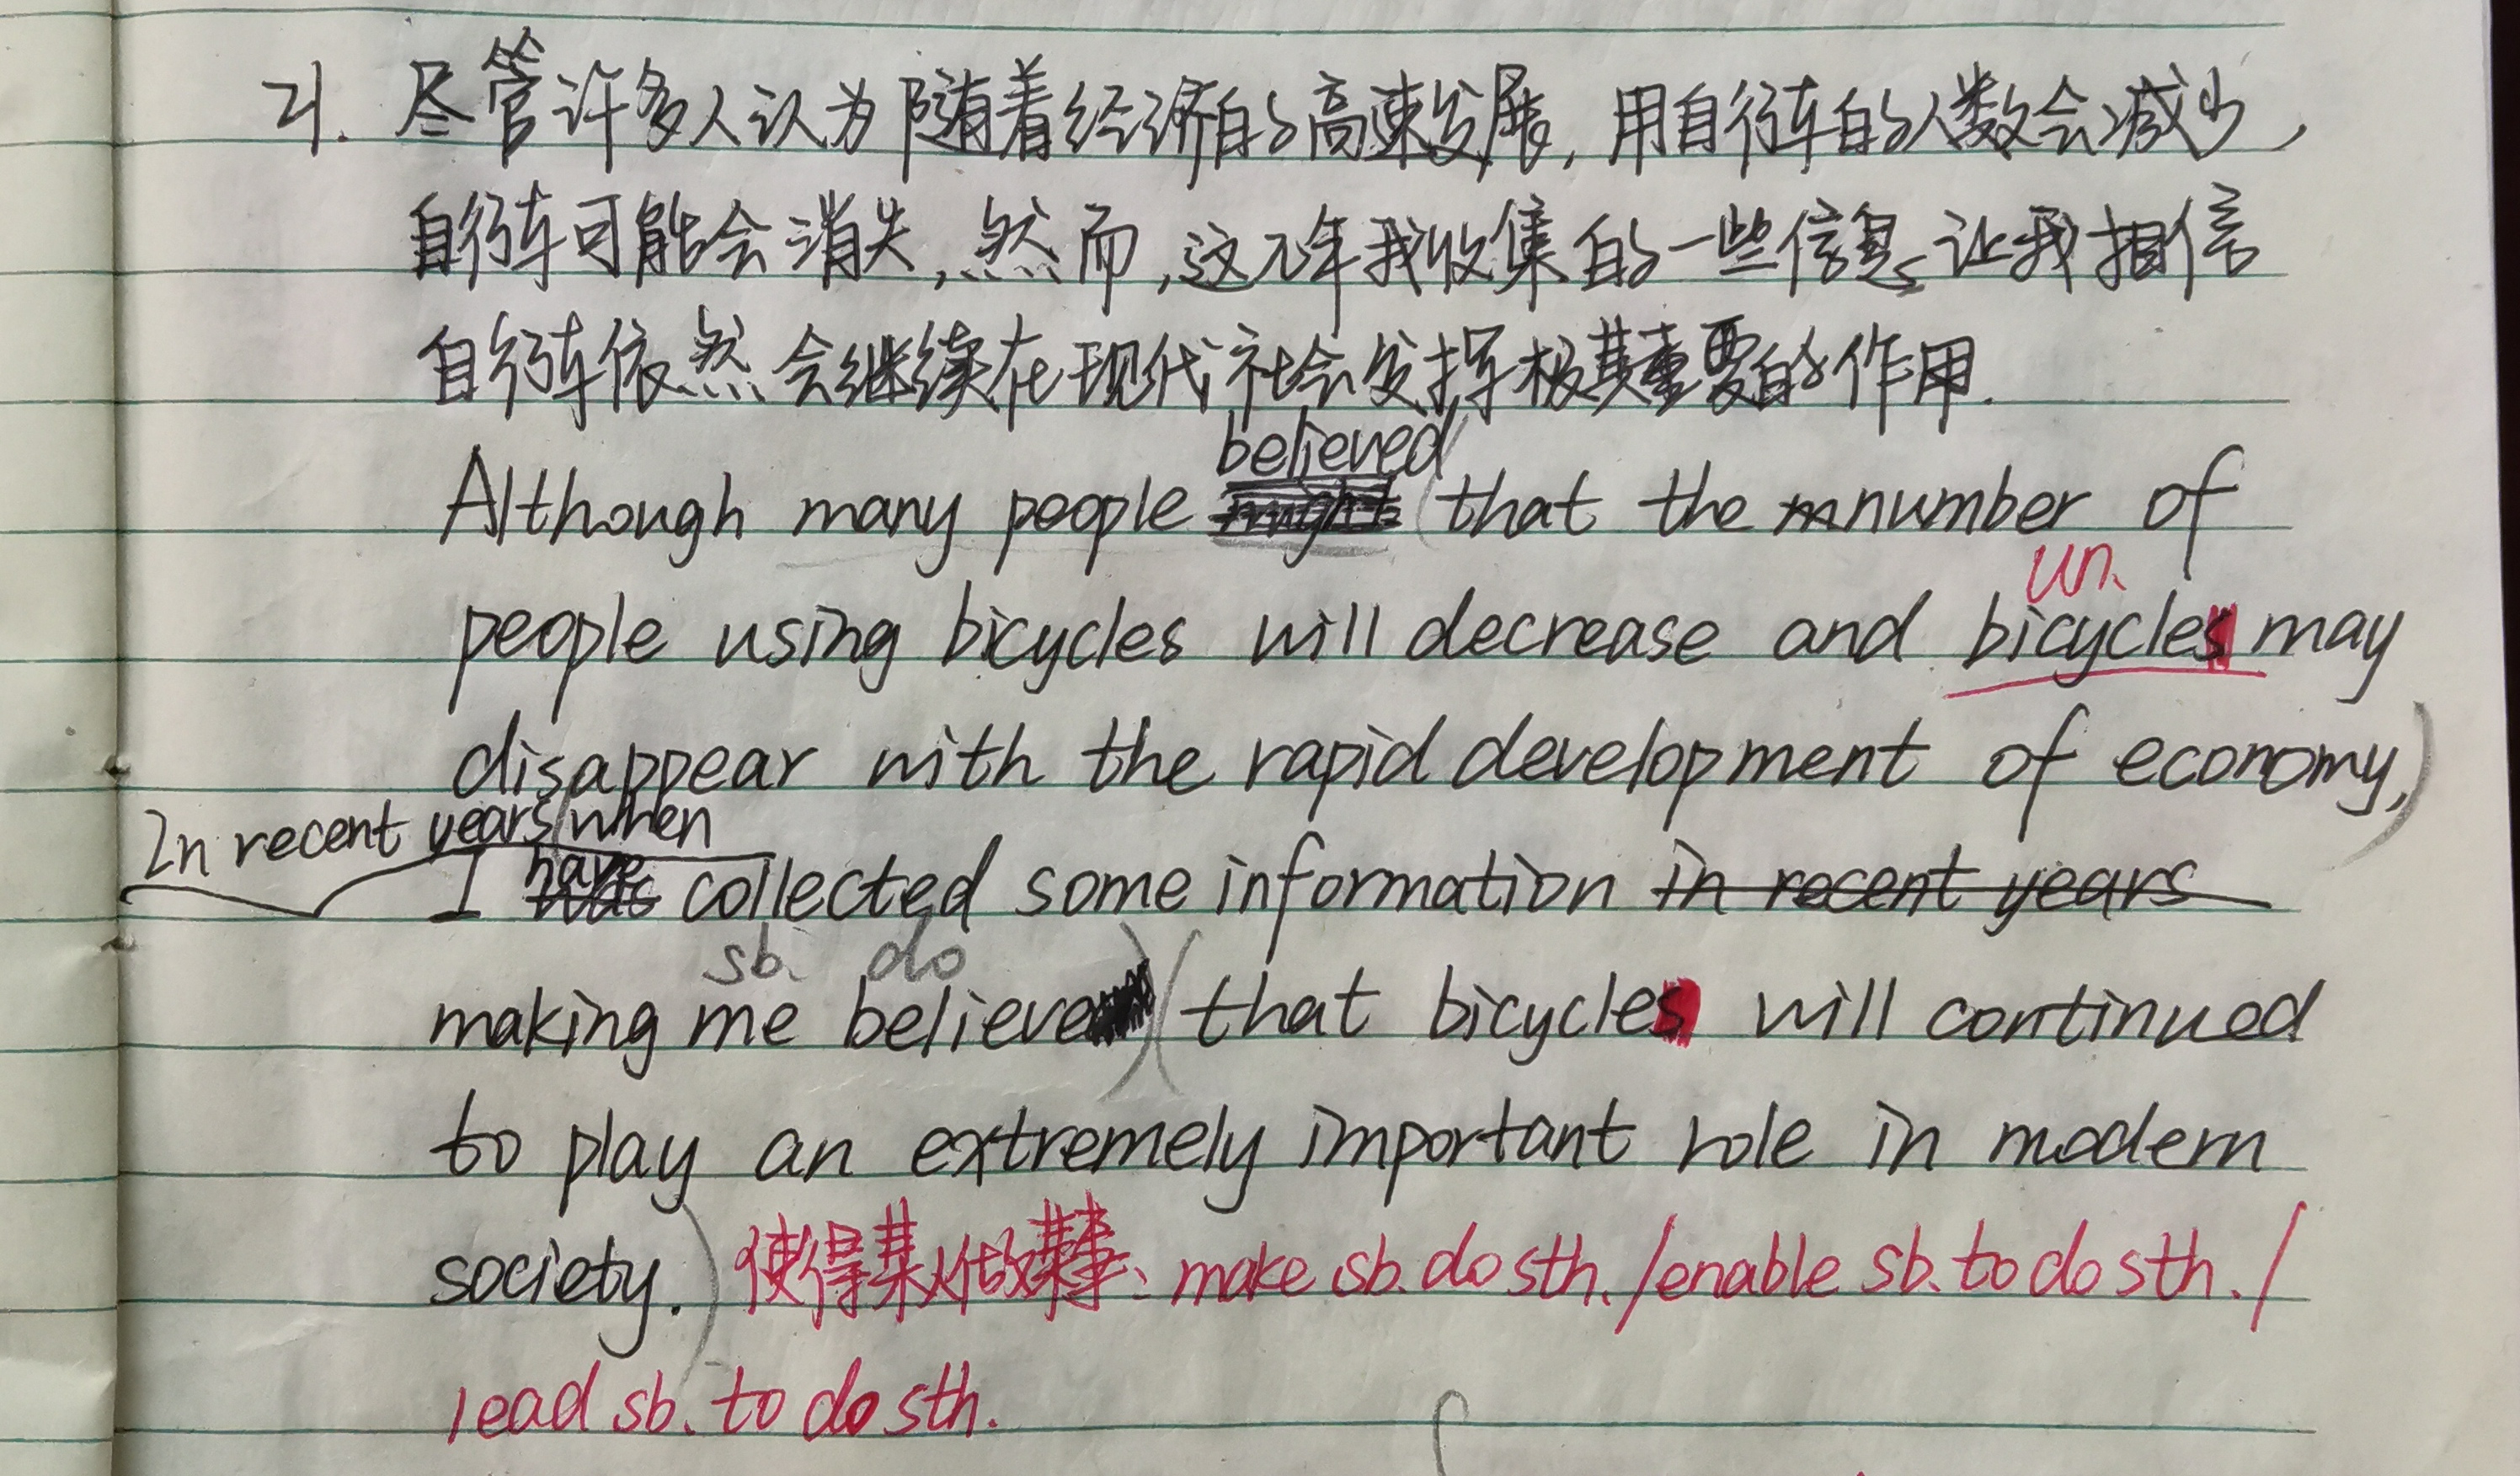 21. 尽管许多人认为随着经济的高速发展，用自行车的人数会减少，
自行车可能会消失，然而，这几年我收集的一些信息让我相信
自行车依然会继续在现代社会发挥极其重要的作用.
believed
Although many people that the number of
un.
people using bicycles will decrease and bicycles may
disappear with the rapid development of economy,
In recent years when
have
I collected some information in recent years
sb. do
making me believe that bicycles will continued
to play an extremely important role in modern
society. 使得某人做某事: make sb. do sth. / enable sb. to do sth. /
lead sb. to do sth.